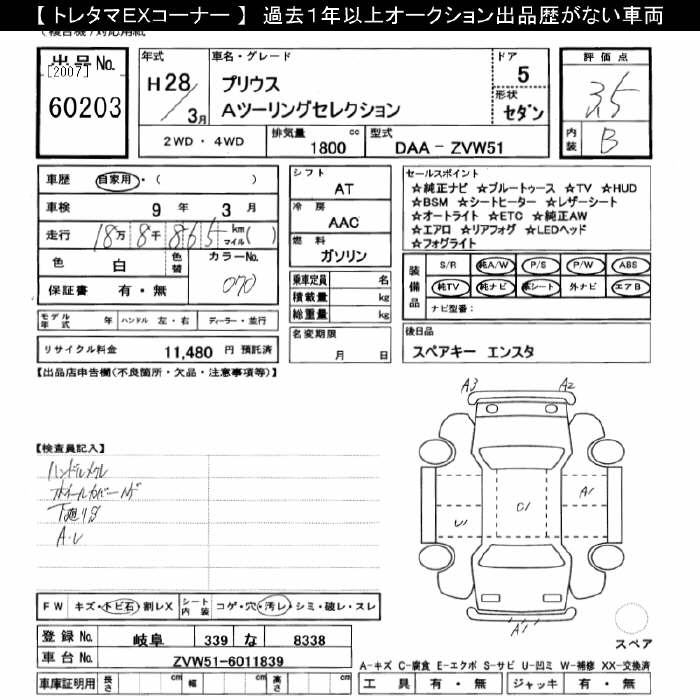 【 トレタマEXコーナー 】 過去1年以上オークション出品歴がない車両
出品No. [2007]
60203
年式 H28/3月
車名・グレード
プリウス
Aツーリングセレクション
ドア 5
形状 セダン
2WD・4WD
排気量 1800 cc
型式 DAA-ZVW51
評価点
3.5
内装 B
車歴 自家用・( )
車検 9年 3月
走行 18万8千865 km マイル( )
色 白 色替 カラーNo. 070
保証書 有・無
モデル年式 年 ハンドル 左・右 ディーラー・並行
リサイクル料金 11,480 円 預託済
シフト AT
冷房 AAC
燃料 ガソリン
乗車定員 名
積載量 kg
総重量 kg
名変期限
月 日
セールスポイント
☆純正ナビ ☆ブルートゥース ☆TV ☆HUD
☆BSM ☆シートヒーター ☆レザーシート
☆オートライト ☆ETC ☆純正AW
☆エアロ ☆リアフォグ ☆LEDヘッド
☆フォグライト
装備品
S/R 純A/W P/S P/W ABS
純TV 純ナビ 革シート 外ナビ エアB
ナビ型番:
後日品
スペアキー エンスタ
【出品店申告欄(不良箇所・欠品・注意事項等)】
【検査員記入】
ハンドルメクレ
下廻りサ
A3 A2
A1
U1
C1
A1
スペア
FW キズ・トビ石・割レX
シート内装 コゲ・穴・汚レ・シミ・破レ・スレ
登録No. 岐阜 339 な 8338
車台No. ZVW51-6011839
車庫証明用 長さ cm 幅 cm 高さ cm
A-キズ C-腐食 E-エクボ S-サビ U-凹ミ W-補修 XX-交換済
工具 有・無 ジャッキ 有・無